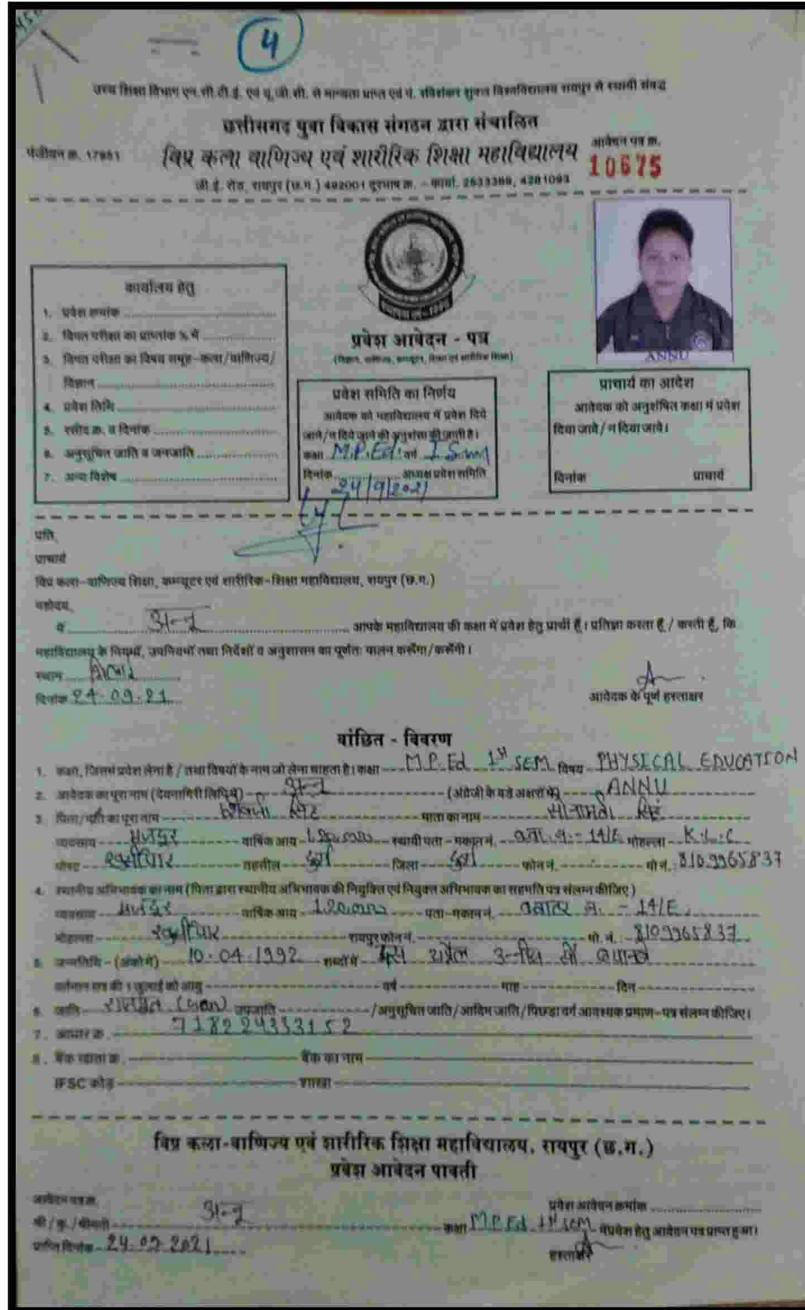 4
उच्च शिक्षा विभाग एन.सी.टी.ई. एवं यू.जी.सी. से मान्यता प्राप्त एवं पं. रविशंकर शुक्ल विश्वविद्यालय रायपुर से स्थायी संबद्ध
छत्तीसगढ़ युवा विकास संगठन द्वारा संचालित
पंजीयन क्र. 17951
विप्र कला वाणिज्य एवं शारीरिक शिक्षा महाविद्यालय
आवेदन पत्र क्र.
10675
जी.ई. रोड, रायपुर (छ.ग.) 492001 दूरभाष क्र. - कार्या. 2533389, 4281093
कार्यालय हेतु
1. प्रवेश क्रमांक
2. विगत परीक्षा का प्राप्तांक % में
3. विगत परीक्षा का विषय समूह-कला/वाणिज्य/
विज्ञान
4. प्रवेश तिथि
5. रसीद क्र. व दिनांक
6. अनुसूचित जाति व जनजाति
7. अन्य विशेष
प्रवेश आवेदन - पत्र
(विज्ञान, वाणिज्य, कम्प्यूटर, शिक्षा एवं शारीरिक शिक्षा)
प्रवेश समिति का निर्णय
आवेदक को महाविद्यालय में प्रवेश दिये
जावे/न दिये जाने की अनुशंसा की जाती है।
कक्षा M.P.Ed. वर्ग I Sem
दिनांक अध्यक्ष प्रवेश समिति
24/9/2021
ANNU
प्राचार्य का आदेश
आवेदक को अनुशंषित कक्षा में प्रवेश
दिया जावे/न दिया जावे।
दिनांक प्राचार्य
प्रति,
प्राचार्य
विप्र कला-वाणिज्य शिक्षा, कम्प्यूटर एवं शारीरिक-शिक्षा महाविद्यालय, रायपुर (छ.ग.)
महोदय,
मैं अन्नू आपके महाविद्यालय की कक्षा में प्रवेश हेतु प्रार्थी हूँ। प्रतिज्ञा करता हूँ / करती हूँ, कि
महाविद्यालय के नियमों, उपनियमों तथा निर्देशों व अनुशासन का पूर्णतः पालन करूँगा/करूँगी।
स्थान भिलाई
दिनांक 24.09.21
आवेदक के पूर्ण हस्ताक्षर
वांछित - विवरण
1. कक्षा, जिसमें प्रवेश लेना है / तथा विषयों के नाम जो लेना चाहता है। कक्षा M.P.Ed 1ST SEM विषय PHYSICAL EDUCATION
2. आवेदक का पूरा नाम (देवनागिरी लिपि में) अन्नू (अंग्रेजी के बड़े अक्षरों में) ANNU
3. पिता/पति का पूरा नाम सिंह माता का नाम सिंह
व्यवसाय मजदूर वार्षिक आय 1,20,000 स्थायी पता-मकान नं. 14/E मोहल्ला K.L.C
पोस्ट खुर्सीपार तहसील दुर्ग जिला दुर्ग फोन नं. मो नं. 8109965837
4. स्थानीय अभिभावक का नाम (पिता द्वारा स्थानीय अभिभावक की नियुक्ति एवं नियुक्त अभिभावक का सहमति पत्र संलग्न कीजिए)
व्यवसाय मजदूर वार्षिक आय 1,20,000 पता-मकान नं. क्वाटर न. - 14/E
मोहल्ला खुर्सीपार रायपुर फोन नं. मो. नं. 8109965837
5. जन्मतिथि - (अंको में) 10.04.1992 शब्दों में दस अप्रैल उन्नीस सौ बयानवे
वर्तमान सत्र की 1 जुलाई को आयु वर्ष माह दिन
6. जाति राजपूत (Gen) उपजाति /अनुसूचित जाति/आदिम जाति/पिछड़ा वर्ग आवश्यक प्रमाण-पत्र संलग्न कीजिए।
7. आधार क्र. 718224333152
8. बैंक खाता क्र. बैंक का नाम
IFSC कोड शाखा
विप्र कला-वाणिज्य एवं शारीरिक शिक्षा महाविद्यालय, रायपुर (छ.ग.)
प्रवेश आवेदन पावती
आवेदन पत्र क्र. प्रवेश आवेदन क्रमांक
श्री / कु. / श्रीमती अन्नू कक्षा M.P.Ed 1st SEM में प्रवेश हेतु आवेदन पत्र प्राप्त हुआ।
प्राप्ति दिनांक - 24.09.2021 हस्ताक्षर